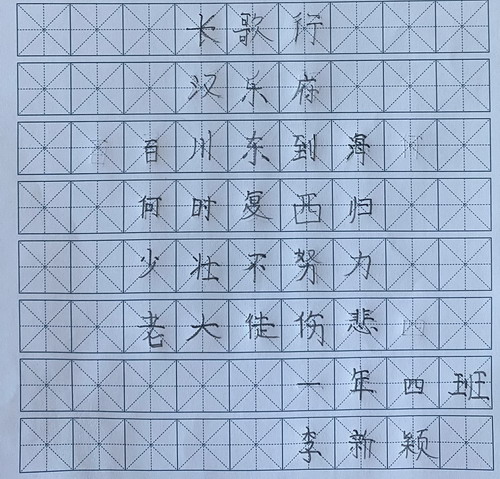 长歌行
汉乐府
百川东到海
何时复西归
少壮不努力
老大徒伤悲
一年四班
李新颖